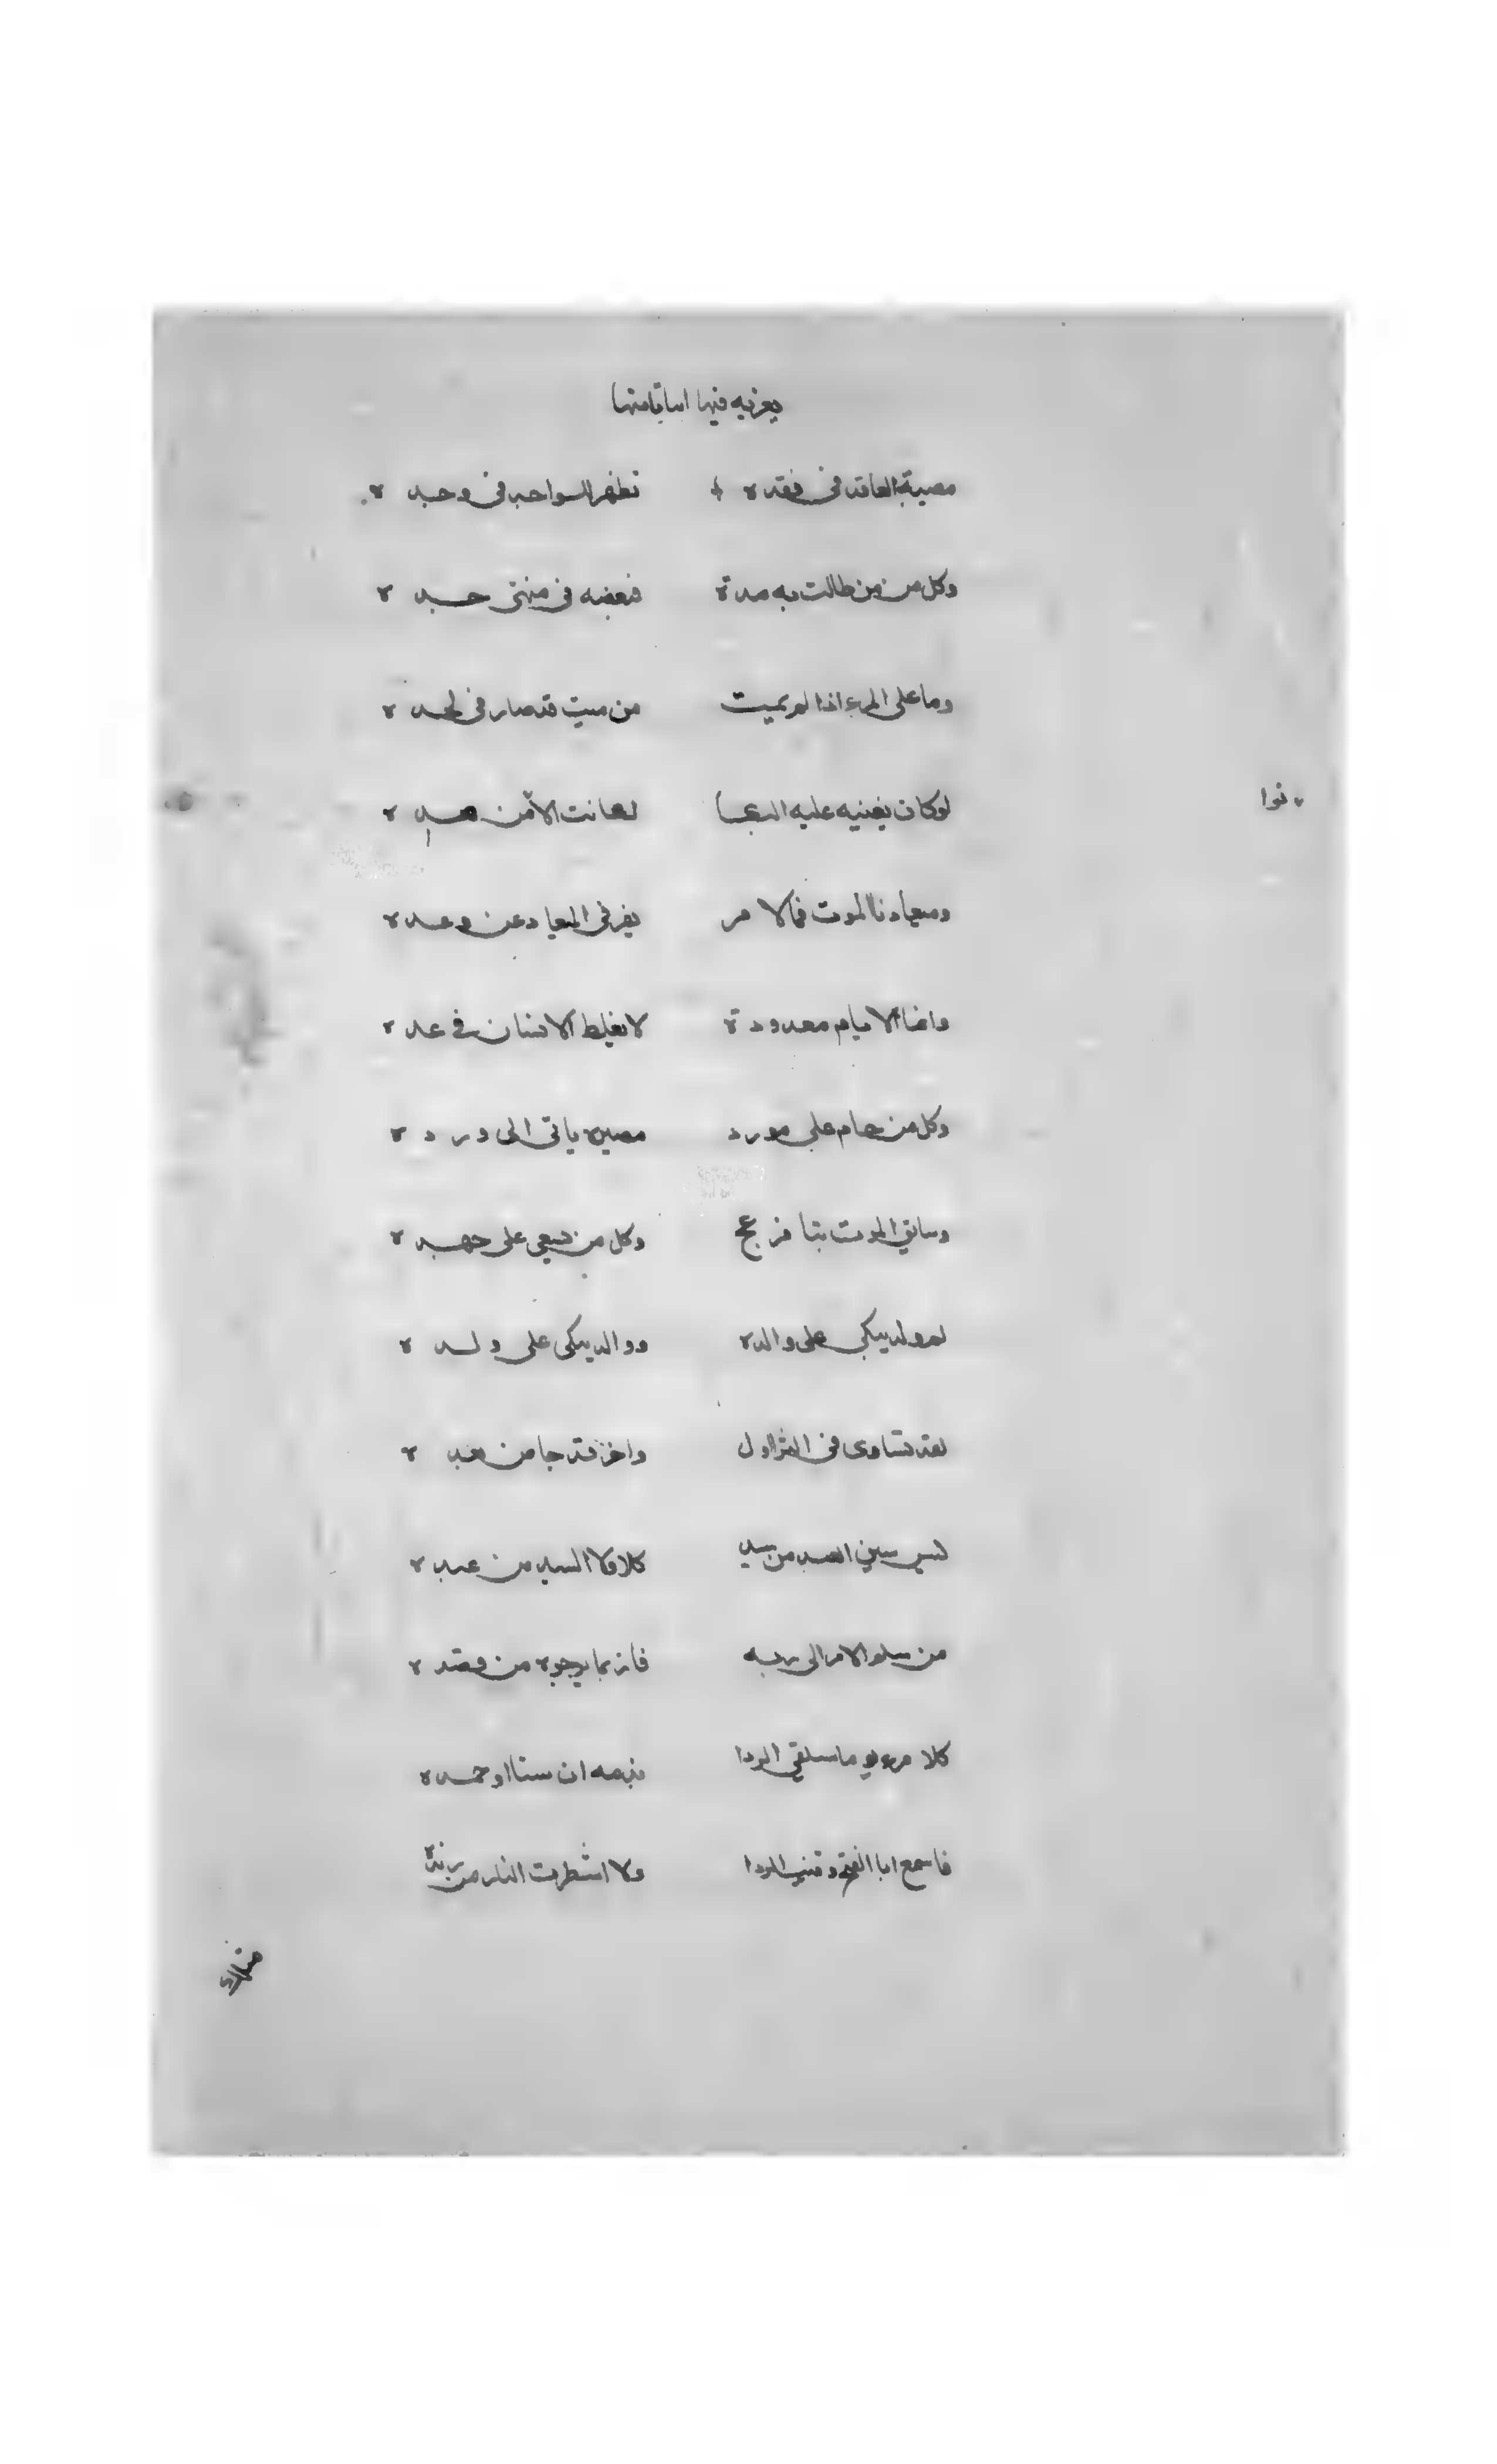 يعزيه فيها ابياتا منها
مصيبة الفاقد في فقده تظهر للواحد في وجده
وكل من من طالت به مدة فبعضه في منتهى حده
وما على المرء اذا لم يميت من ميت قد صار في لحده
لو كان يغنيه عليه البكا لكانت الأمن
نوا
وميعادنا الموت فما لامر يفر في الميعاد عن وعده
وانما الايام معدودة لا يغلط الانسان في عده
وكل من حام على مورد مصيره ياتي الى ورده
وسايق الموت بنا مزعج وكل من يسعى على جهده
لم ولد يبكي على والده ووالد يبكي على ولده
لقد تساوى في الثرا اول واخر قد جا من بعده
ليس العبد من سيد كلا ولا السيد من عبده
من سلم الامر الى ربه فاز بما يرجوه من قصده
كلا مرء يوما سيلقى الردا ان سنا او حمده
فاسمع ابا الفتح وقيت الردا ولا اشطرت النار من زنده